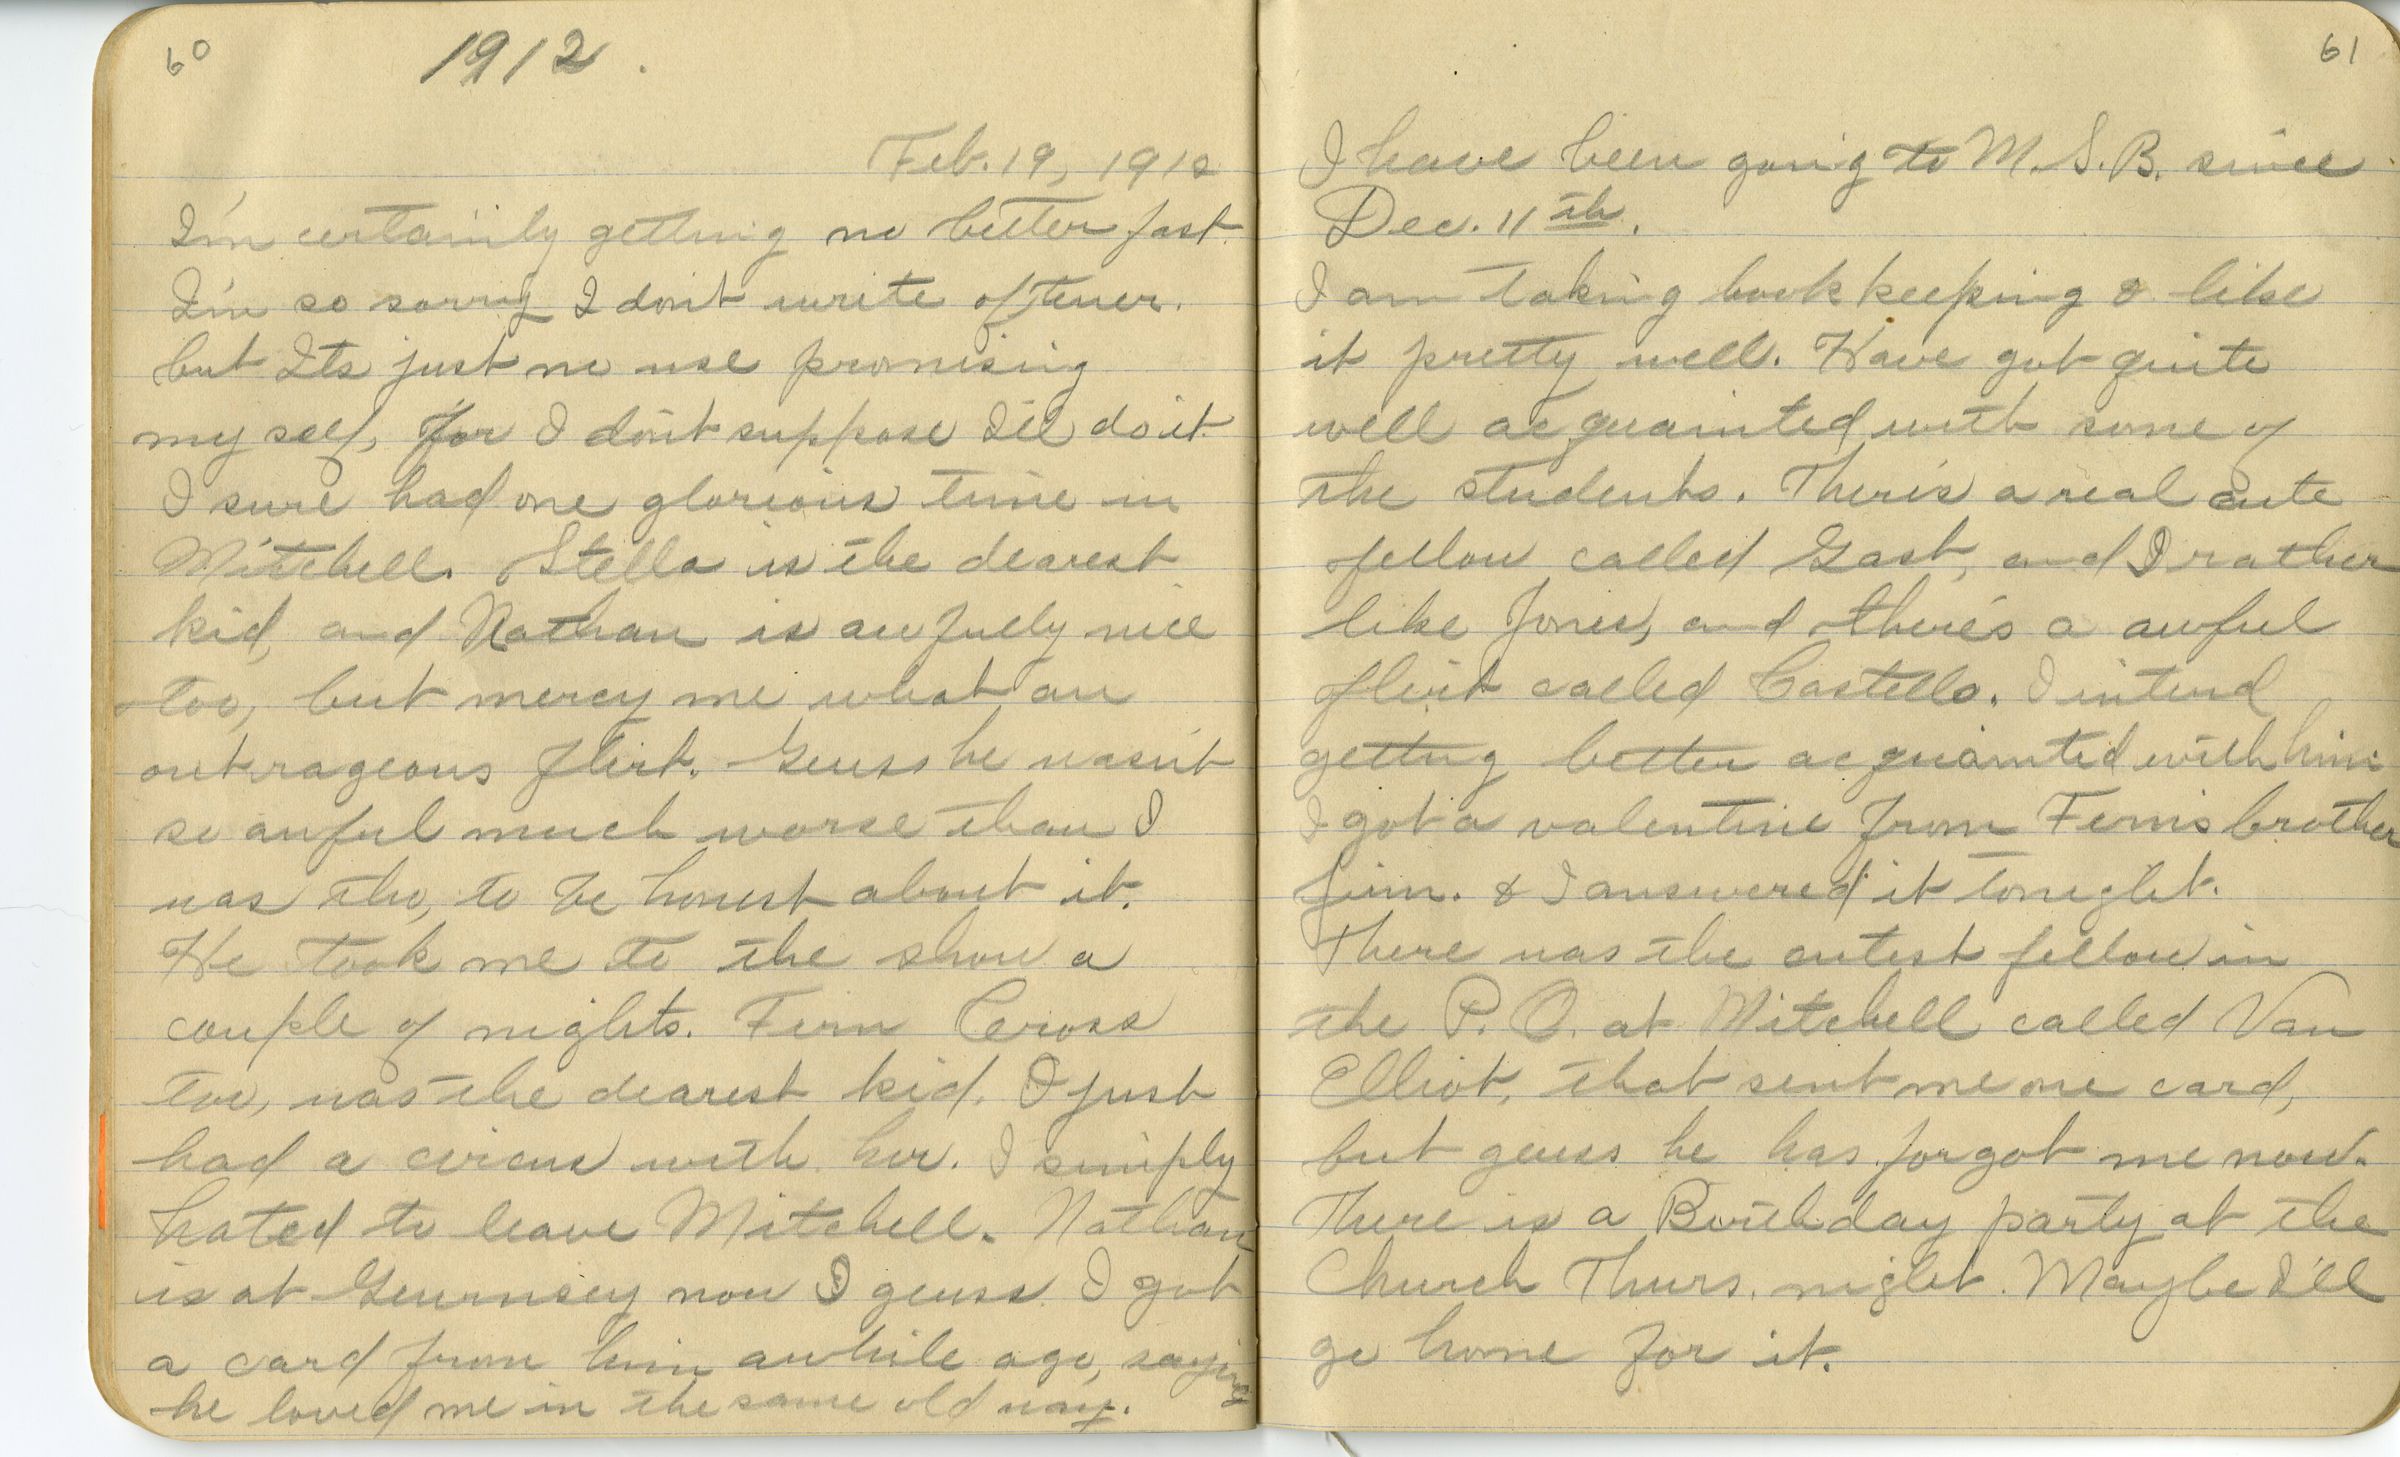 60
1912.
Feb. 19, 1912
I'm certainly getting no better fast.
I'm so sorry I don't write oftener.
but Its just no use promising
my self, for I don't suppose I'll do it.
I sure had one glorious time in
Mitchell. Stella is the dearest
kid, and Nathan is awfully nice
too, but mercy me what an
outrageous flirt. Geuss he wasn't
so awful much worse than I
was tho, to be honest about it.
He took me to the show a
couple of nights. Fern Cross
too, was the dearest kid. I just
had a circus with her. I simply
hated to leave Mitchell. Nathan
is at Geurnsey now I geuss. I got
a card from him awhile ago, saying
he loved me in the same old way.
61
I have been going to M.S.B. since
Dec. 11th.
I am taking book keeping & like
it pretty well. Have got quite
well acquainted with some of
the students. There's a real cute
fellow called Gast, and I rather
like Jones, and there's a awful
flirt called Castello. I intend
getting better acquainted with him
I got a valentine from Ferns brother
Jim. & I answered it tonight.
There was the cutest fellow in
the P.O. at Mitchell called Van
Elliot, that sent me one card,
but geuss he has forgot me now.
There is a Birthday party at the
Church Thurs. night. Maybe I'll
go home for it.